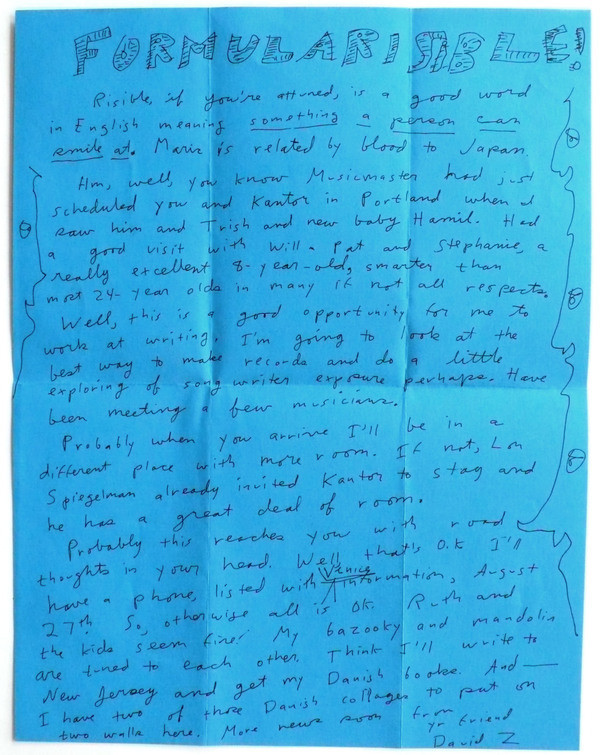 FORMULARISIBLE!
Risible, if you're attuned, is a good word
in English meaning something a person can
smile at. Marix is related by blood to Japan.
Hm, well, you know Musicmaster had just
scheduled you and Kantor in Portland when I
saw him and Trish and new baby Hamil. Had
a good visit with Will & Pat and Stephanie, a
really excellent 8-year-old, smarter than
most 24-year olds in many if not all respects.
Well, this is a good opportunity for me to
work at writing. I'm going to look at the
best way to make records and do a little
exploring of song writer exposure perhaps. Have
been meeting a few musicians.
Probably when you arrive I'll be in a
different place with more room. If not, Lon
Spiegelman already invited Kantor to stay and
he has a great deal of room.
Probably this reaches you with road
thoughts in your head. Well that's O.K. I'll
have a phone, listed with Venice Information, August
27th. So, otherwise all is OK. Ruth and
the kids seem fine! My bazooky and mandolin
are tuned to each other. Think I'll write to
New Jersey and get my Danish books. And —
I have two of those Danish collages to put on
two walls here. More news soon from
yr friend
David Z